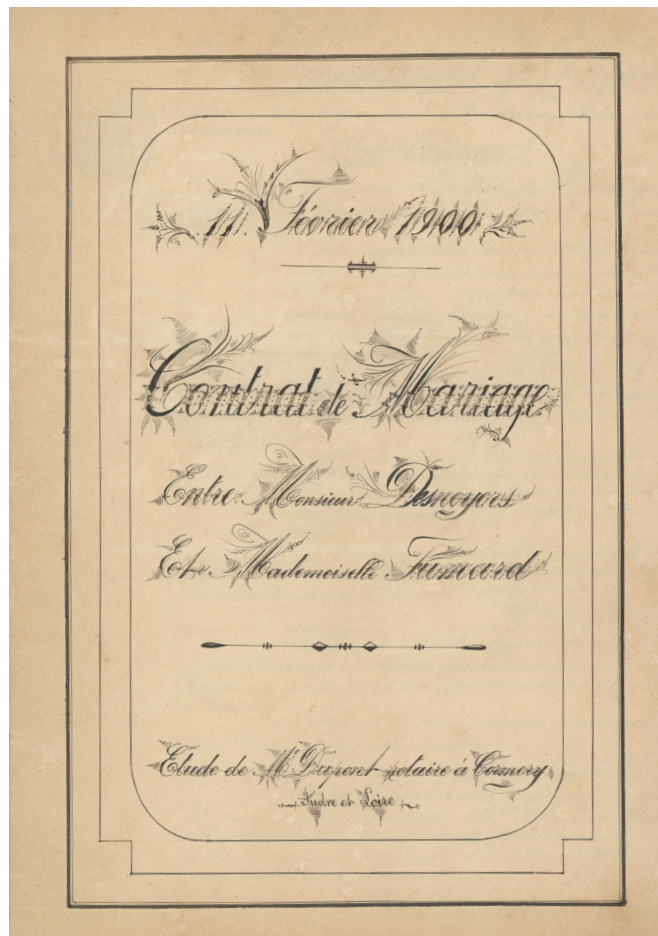 11 Février 1900
Contrat de Mariage
Entre Monsieur Desnoyers
Et Mademoiselle Fumard
Etude de Me Dupont notaire à Cormery
Indre et Loire